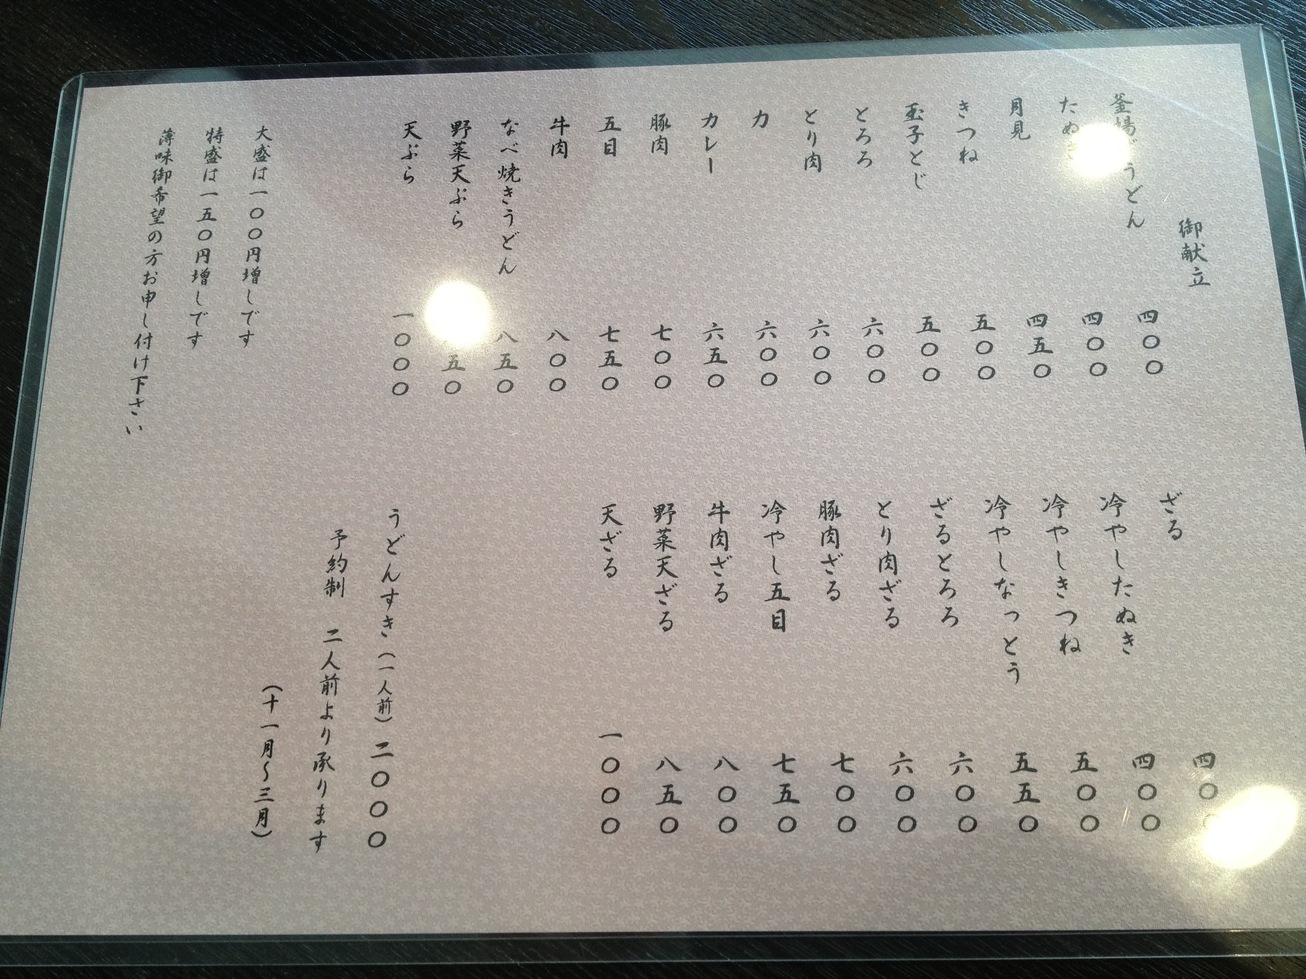 御献立
釜揚うどん 四〇〇
たぬき 四〇〇
月見 四五〇
きつね 五〇〇
玉子とじ 五〇〇
とろろ 六〇〇
とり肉 六〇〇
力 六〇〇
カレー 六五〇
豚肉 七〇〇
五目 七五〇
牛肉 八〇〇
なべ焼きうどん 八五〇
野菜天ぷら 五〇
天ぷら 一〇〇〇
大盛は一〇〇円増しです
特盛は一五〇円増しです
薄味御希望の方お申し付け下さい
ざる 四〇〇
冷やしたぬき 四〇〇
冷やしきつね 五〇〇
冷やしなっとう 五五〇
ざるとろろ 六〇〇
とり肉ざる 六〇〇
豚肉ざる 七〇〇
冷やし五目 七五〇
牛肉ざる 八〇〇
野菜天ざる 八五〇
天ざる 一〇〇〇
うどんすき(一人前) 二〇〇〇
予約制 二人前より承ります
(十一月〜三月)